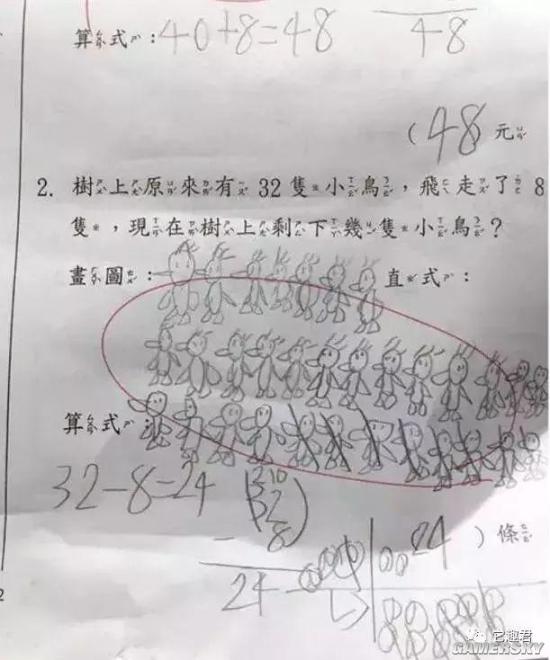 算式：40+8=48
48
(48)元
2. 樹上原來有 32 隻小鳥，飛走了 8
隻，現在樹上剩下幾隻小鳥？
畫圖：
直式：
算式：
32-8=24
210
32
- 8
24
24 ) 條
2
它趣君
GAMERSKY